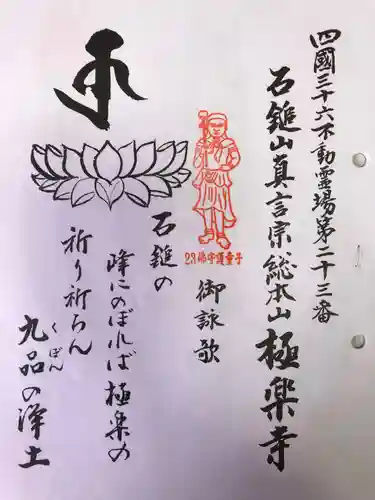 四國三十六不動霊場第二十三番
石鎚山真言宗総本山極楽寺
御詠歌
石鎚の
峰にのぼれば極楽の
祈り祈らん
九品の浄土
くぼん